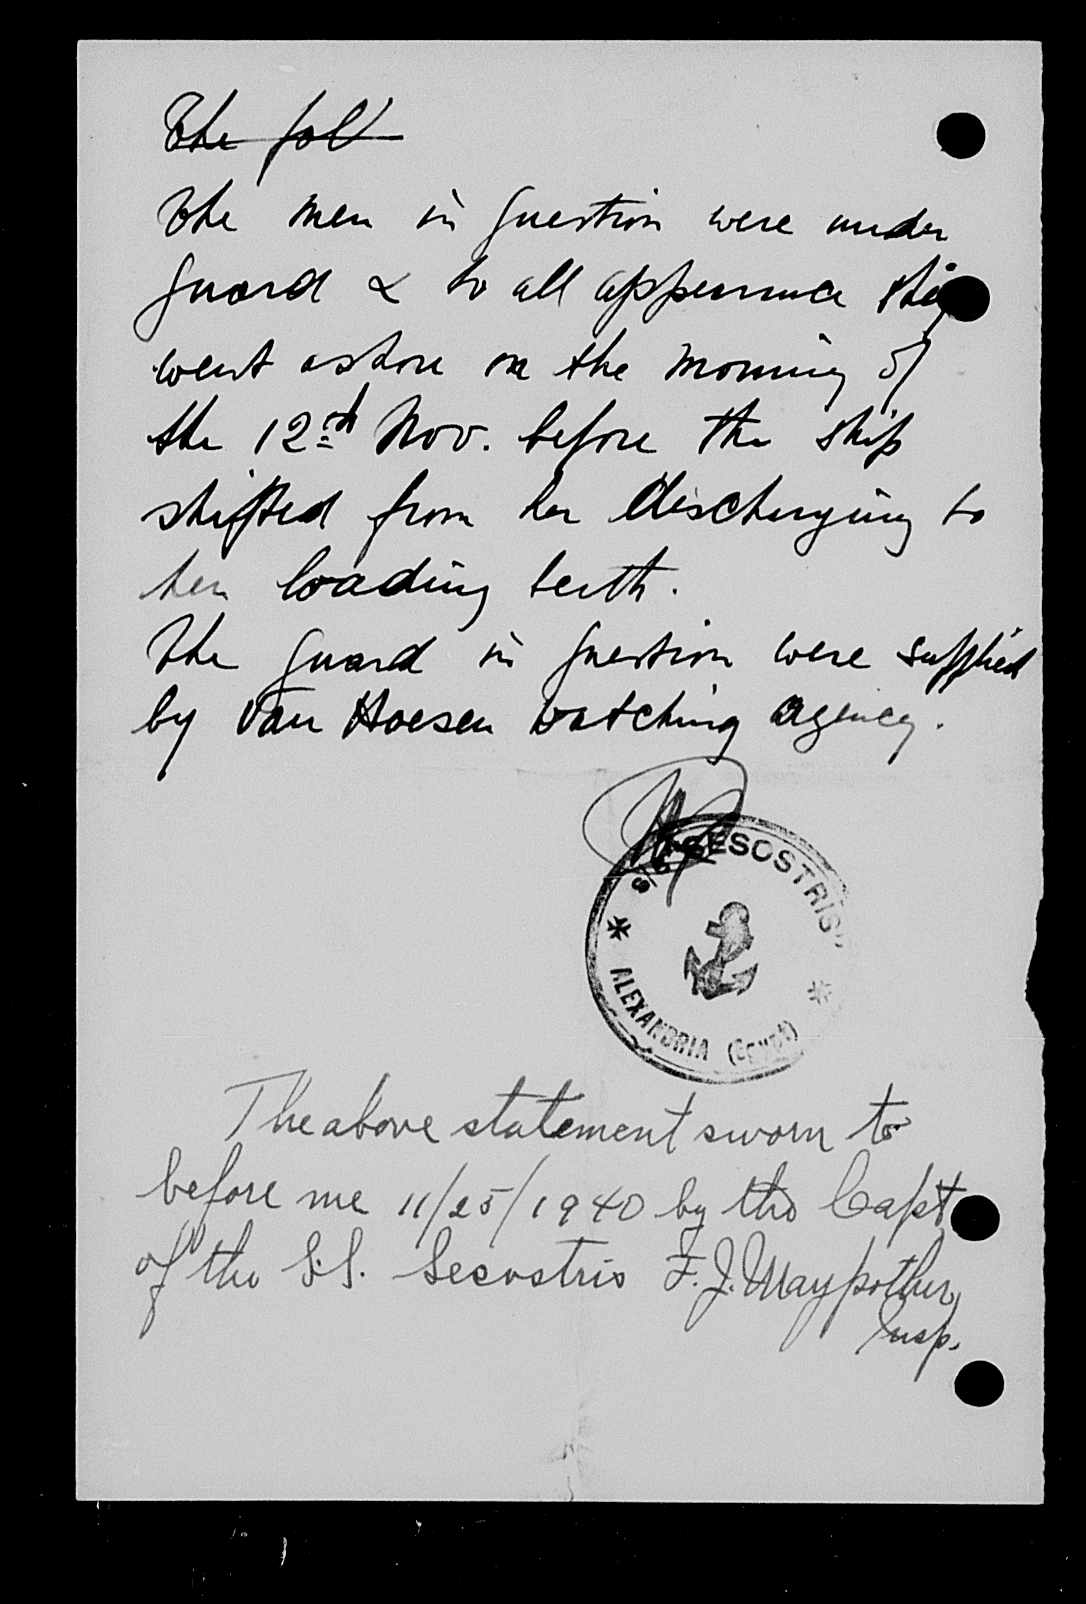 The foll
The men in question were under
guard & to all appearance they
went ashore on the morning of
the 12th Nov. before the ship
shifted from her discharging to
her loading berth.
The guard in question were supplied
by Van Hoesen watching agency.
S/S "SESOSTRIS"
ALEXANDRIA (EGYPT)
The above statement sworn to
before me 11/25/1940 by the Capt
of the S.S. Sesostris F. J. Maypother
Insp.